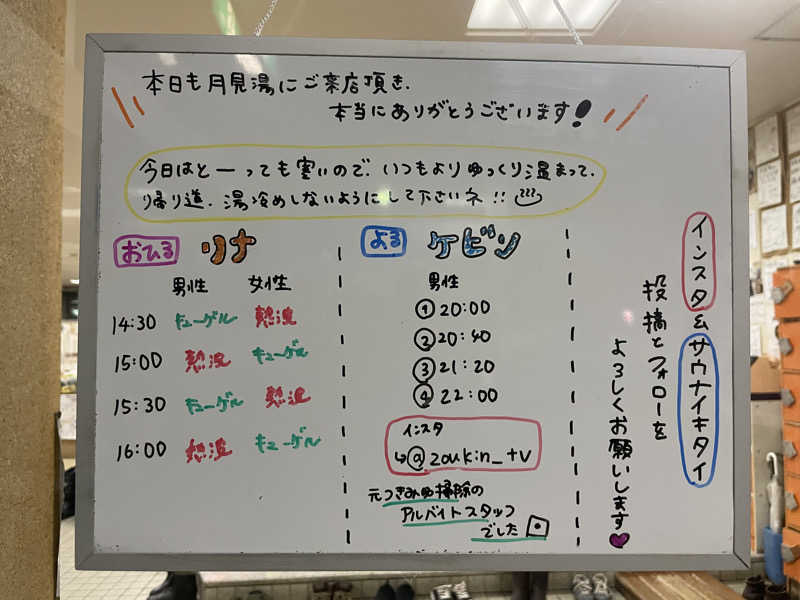 本日も月見湯にご来店頂き、
本当にありがとうございます!
今日はと〜っても寒いので、いつもよりゆっくり温まって、
帰り道、湯冷めしないようにして下さいネ!!
おひる リナ
男性 女性
14:30 キューゲル 熱波
15:00 熱波 キューゲル
15:30 キューゲル 熱波
16:00 熱波 キューゲル
よる ケビン
男性
① 20:00
② 20:40
③ 21:20
④ 22:00
インスタ
↳@zoukin_tv
元つきみゆ掃除の
アルバイトスタッフ
でした
インスタ&サウナイキタイ
投稿とフォローを
よろしくお願いします